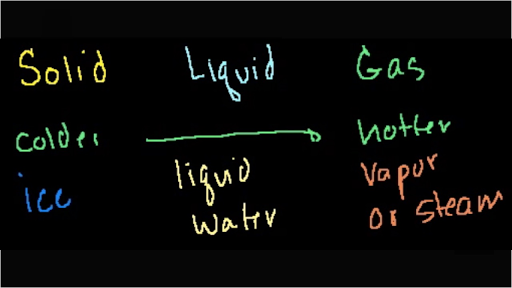 Solid Liquid Gas
colder hotter
ice liquid water vapor or steam